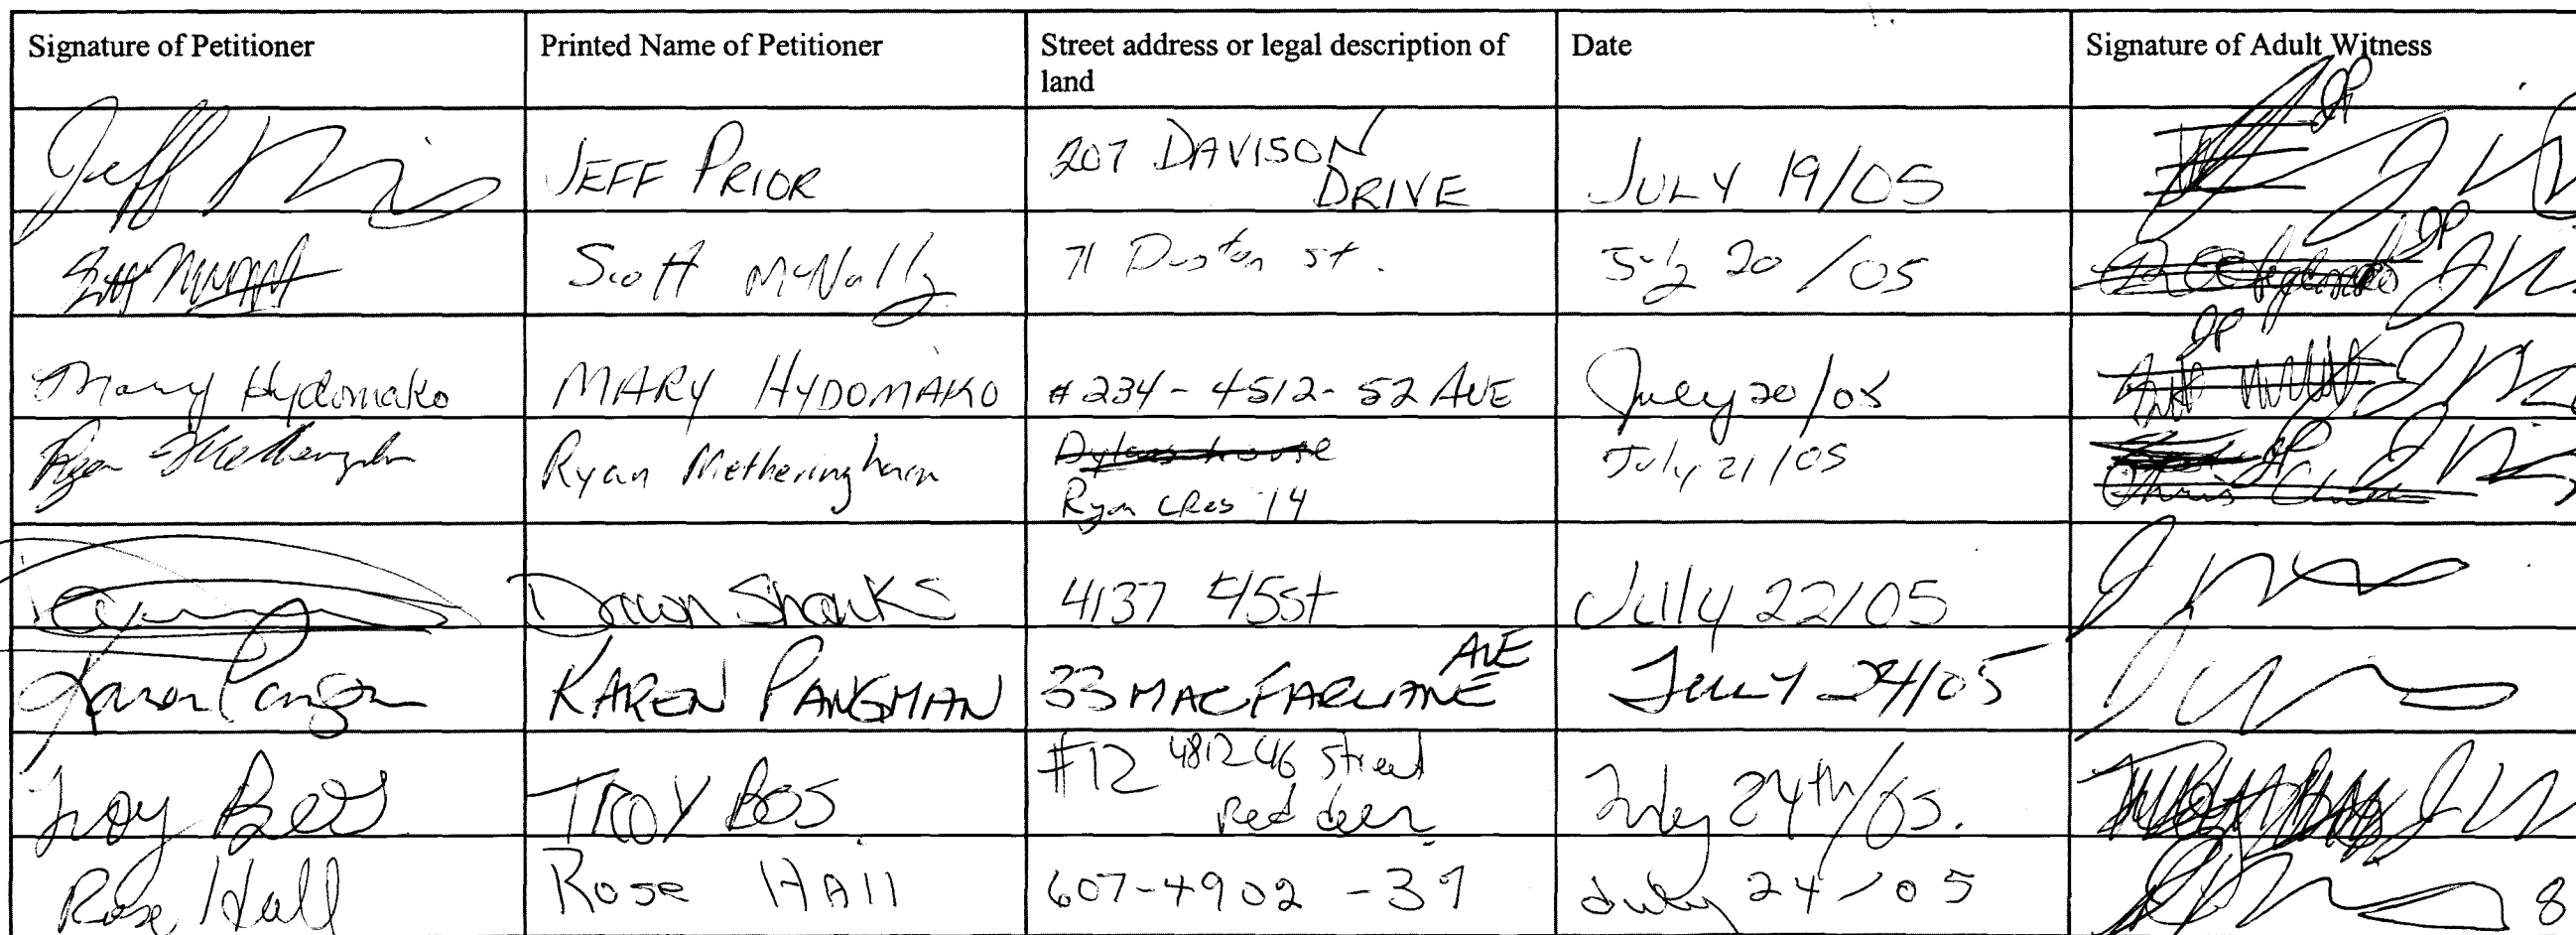 Signature of Petitioner
Printed Name of Petitioner
Street address or legal description of
land
Date
Signature of Adult Witness
Jeff
JEFF PRIOR
207 DAVISON
DRIVE
JULY 19/05
JP
Scott McNally
71 Duston st.
July 20/05
JP
Mary Hydomako
MARY HYDOMAKO
#234-4512-52 AVE
July 20/05
JP
Ryan Metheringham
Ryan Metheringham
Dylans house
Ryan Cres 14
July 21/05
JP
Chris
Dawn Shanks
4137 45st
July 22/05
Karen Pangman
KAREN PANGMAN
33 MACFARLANE AVE
JULY 24/05
Troy Bos
TROY BOS
#12 4812 46 street
Red deer
July 24th/05.
Rose Hall
Rose HAll
607-4902-39
July 24/05
8